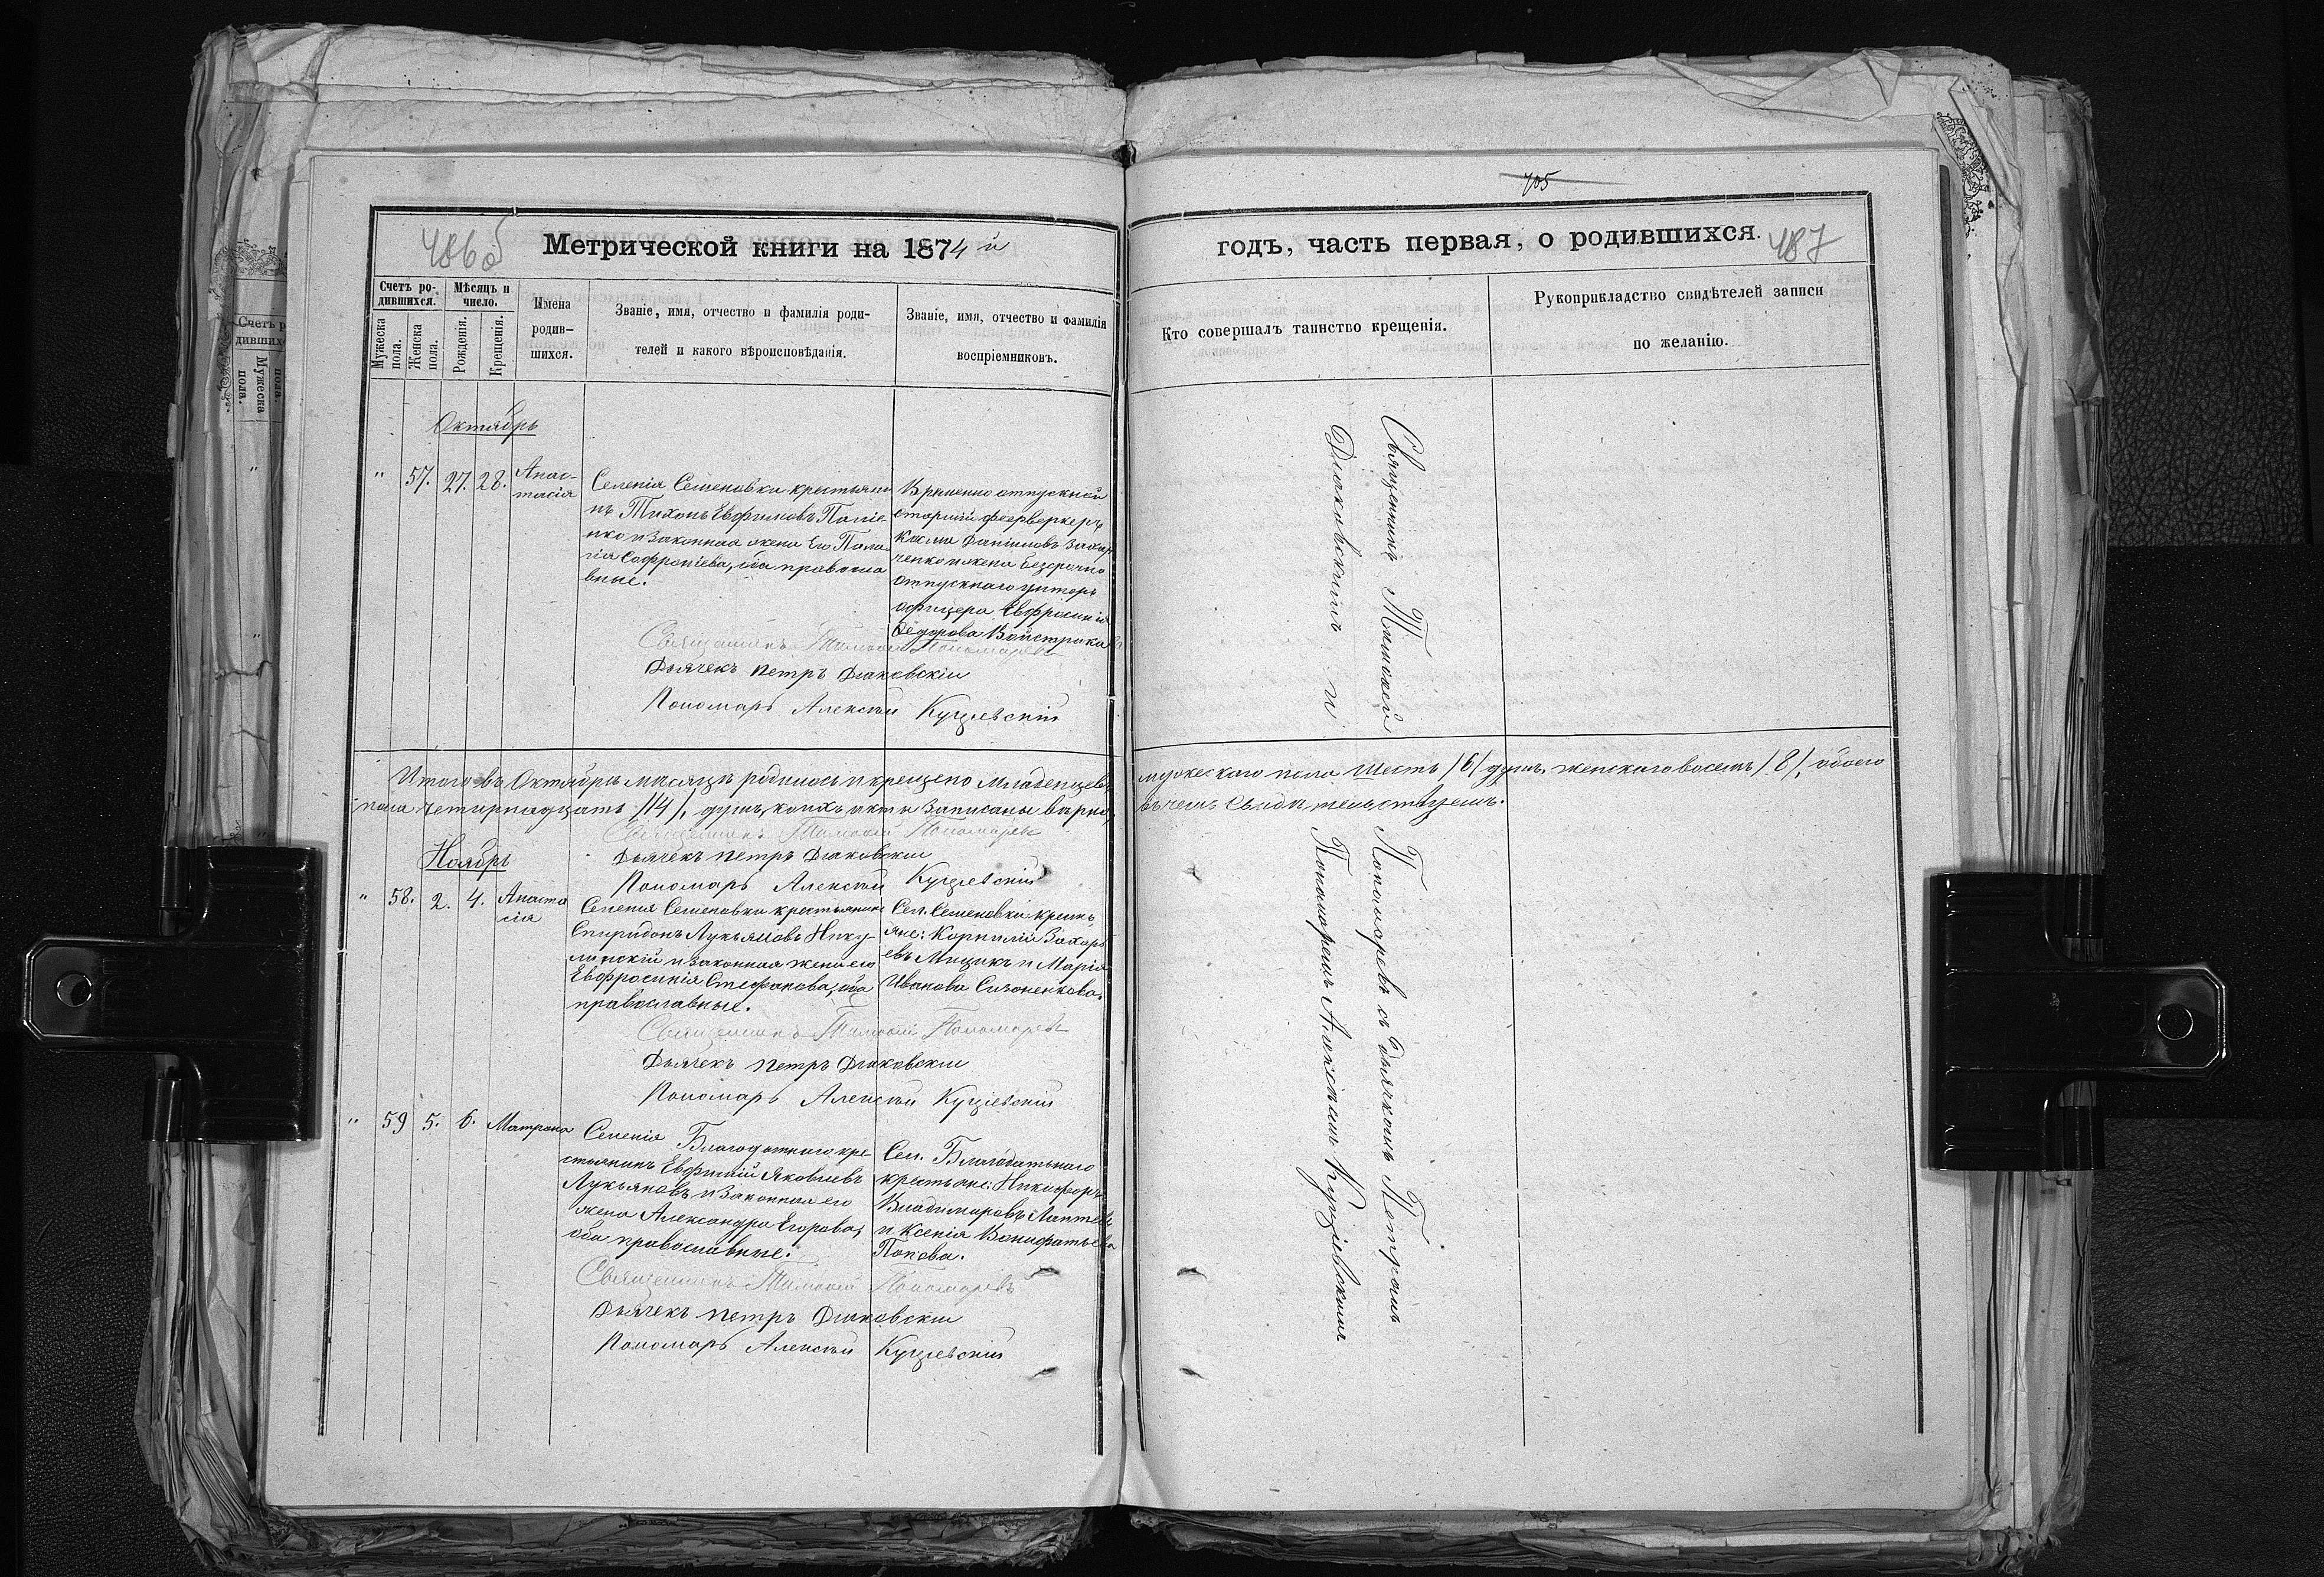 705
486об
Метрической книги на 1874й
годъ, часть первая, о родившихся.
487
Счетъ ро-
дившихся.
Мѣсяцъ и
число.
Имена
родив-
шихся.
Званіе, имя, отчество и фамилія роди-
телей и какого вѣроисповѣданія.
Званіе, имя, отчество и фамилія
воспріемниковъ.
Мужеска
пола.
Женска
пола.
Рожденія.
Крещенія.
Кто совершалъ таинство крещенія.
Рукоприкладство свидѣтелей записи
по желанію.
Октябрь
" 57. 27. 28.
Анас-
тасія
Селенія Семеновки крестьяни
нъ Тихонъ Евфимовъ Паліе
нко и законная жена Его Пела
гія Софроніева, оба правосла
вные.
Временно отпускной
старшій феерверкеръ
Козма Даніиловъ Захар
ченко и жена безсрочно
отпускнаго унтеръ
офицера Евфросинія
Ѳедорова Войстрикова
Священникъ Тимоѳей Пономаревъ
Дьячекъ Петръ Діаковскій
Пономарь Алексѣй Кущіевскій
Итого въ Октябрѣ мѣсяцѣ родилось и крещено младенцевъ
мужескаго пола шесть /6/ душъ, женскаго восемь /8/, обоего
пола четырнадцать /14/, душъ, коихъ акты записаны вѣрно,
въ чемъ свидѣтельствуемъ.
Священникъ Тимоѳей Пономаревъ
Дьячекъ Петръ Діаковскій
Пономарь Алексѣй Кущіевскій
Ноябрь
" 58. 2. 4.
Анаста
сія
Селенія Семеновки крестьянинъ
Спиридонъ Лукьяновъ Нику-
линскій и законная жена его
Евфросинія Стефанова, оба
православные.
Сел. Семеновки крест
яне: Корнилій Захарь
евъ Мицикъ и Марія
Иванова Сизоненкова.
Священникъ Тимоѳей Пономаревъ
Дьячекъ Петръ Діаковскій
Пономарь Алексѣй Кущіевскій
" 59 5. 6.
Матрона
Селенія Благодатнаго кре
стьянинъ Евфимій Яковлевъ
Лукьяновъ и законная его
жена Александра Егорова,
оба православные.
Сел. Благодатнаго
крестьяне: Никифоръ
Владимировъ Лаптевъ
и Ксенія Вонифатьева
Попова.
Священникъ Тимоѳей Пономаревъ
Дьячекъ Петръ Діаковскій
Пономарь Алексѣй Кущіевскій
Священникъ Тимоѳей Пономаревъ съ дьячкомъ Петромъ
Діаковскимъ и Пономаремъ Алексѣемъ Кущіевскимъ
Счетъ р
дивших
Мужеска
пола.